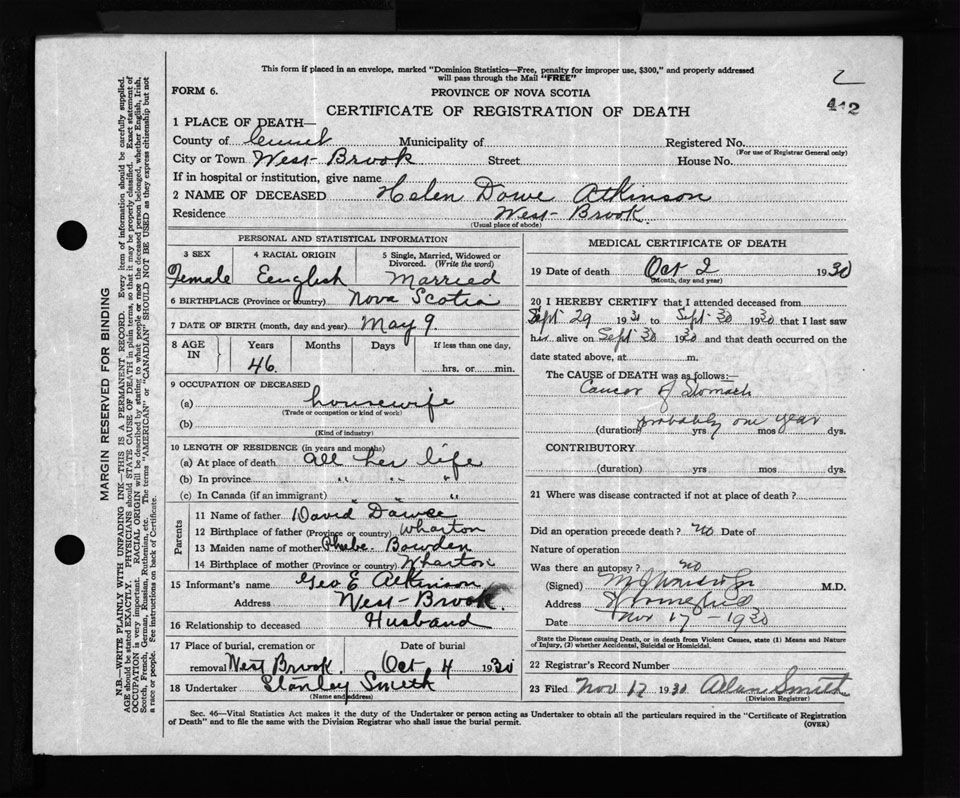 This form if placed in an envelope, marked "Dominion Statistics—Free, penalty for improper use, $300," and properly addressed
will pass through the Mail "FREE"
FORM 6.
PROVINCE OF NOVA SCOTIA
CERTIFICATE OF REGISTRATION OF DEATH
2
442
1 PLACE OF DEATH—
County of Municipality of Registered No.
(For use of Registrar General only)
City or Town West-Brook Street House No.
If in hospital or institution, give name
2 NAME OF DECEASED Helen Dowe Atkinson
Residence West-Brook.
(Usual place of abode)
PERSONAL AND STATISTICAL INFORMATION
3 SEX 4 RACIAL ORIGIN 5 Single, Married, Widowed or
Divorced. (Write the word)
Female Eenglish Married
6 BIRTHPLACE (Province or country) Nova Scotia
7 DATE OF BIRTH (month, day and year) May 9.
8 AGE IN Years Months Days If less than one day,
46. hrs. or min.
9 OCCUPATION OF DECEASED
(a) housewife
(Trade or occupation or kind of work)
(b)
(Kind of industry)
10 LENGTH OF RESIDENCE (in years and months)
(a) At place of death all her life
(b) In province " " "
(c) In Canada (if an immigrant) " " "
Parents
11 Name of father David Dawse
12 Birthplace of father (Province or country) Wharton
13 Maiden name of mother Phebe- Bowden
14 Birthplace of mother (Province or country) Wharton
15 Informant's name Geo E Atkinson
Address West-Brook.
16 Relationship to deceased Husband
17 Place of burial, cremation or Date of burial
removal West Brook. Oct 4 1930
18 Undertaker Stanley Smith
(Name and address)
MEDICAL CERTIFICATE OF DEATH
19 Date of death Oct 2 1930
(Month, day and year)
20 I HEREBY CERTIFY that I attended deceased from
Sept 29 1931 to Sept-30 1930 that I last saw
her alive on Sept 30 1930 and that death occurred on the
date stated above, at m.
The CAUSE of DEATH was as follows:—
Cancer of Stomach
probably one year
(duration) yrs mos dys.
CONTRIBUTORY
(duration) yrs mos dys.
21 Where was disease contracted if not at place of death?
Did an operation precede death? no Date of
Nature of operation
Was there an autopsy? no
(Signed) M.D.
Address
Date Nov 17 - 1930
State the Disease causing Death, or in death from Violent Causes, state (1) Means and Nature
of Injury, (2) whether Accidental, Suicidal or Homicidal.
22 Registrar's Record Number
23 Filed Nov 17 1930 Alan Smith
(Division Registrar)
Sec. 46—Vital Statistics Act makes it the duty of the Undertaker or person acting as Undertaker to obtain all the particulars required in the "Certificate of Registration
of Death" and to file the same with the Division Registrar who shall issue the burial permit.
(OVER)
MARGIN RESERVED FOR BINDING
N.B.—WRITE PLAINLY WITH UNFADING INK—THIS IS A PERMANENT RECORD. Every item of information should be carefully supplied.
AGE should be stated EXACTLY. PHYSICIANS should STATE CAUSE OF DEATH in plain terms, so that it may be properly classified. Exact statement of
OCCUPATION is very important. RACIAL ORIGIN will be described by stating to what people or race the deceased person belonged, whether English, Irish,
Scotch, French, German, Russian, Ruthenian, etc. The terms "AMERICAN" or "CANADIAN" SHOULD NOT BE USED as they express citizenship but not
a race or people. See instructions on back of Certificate.